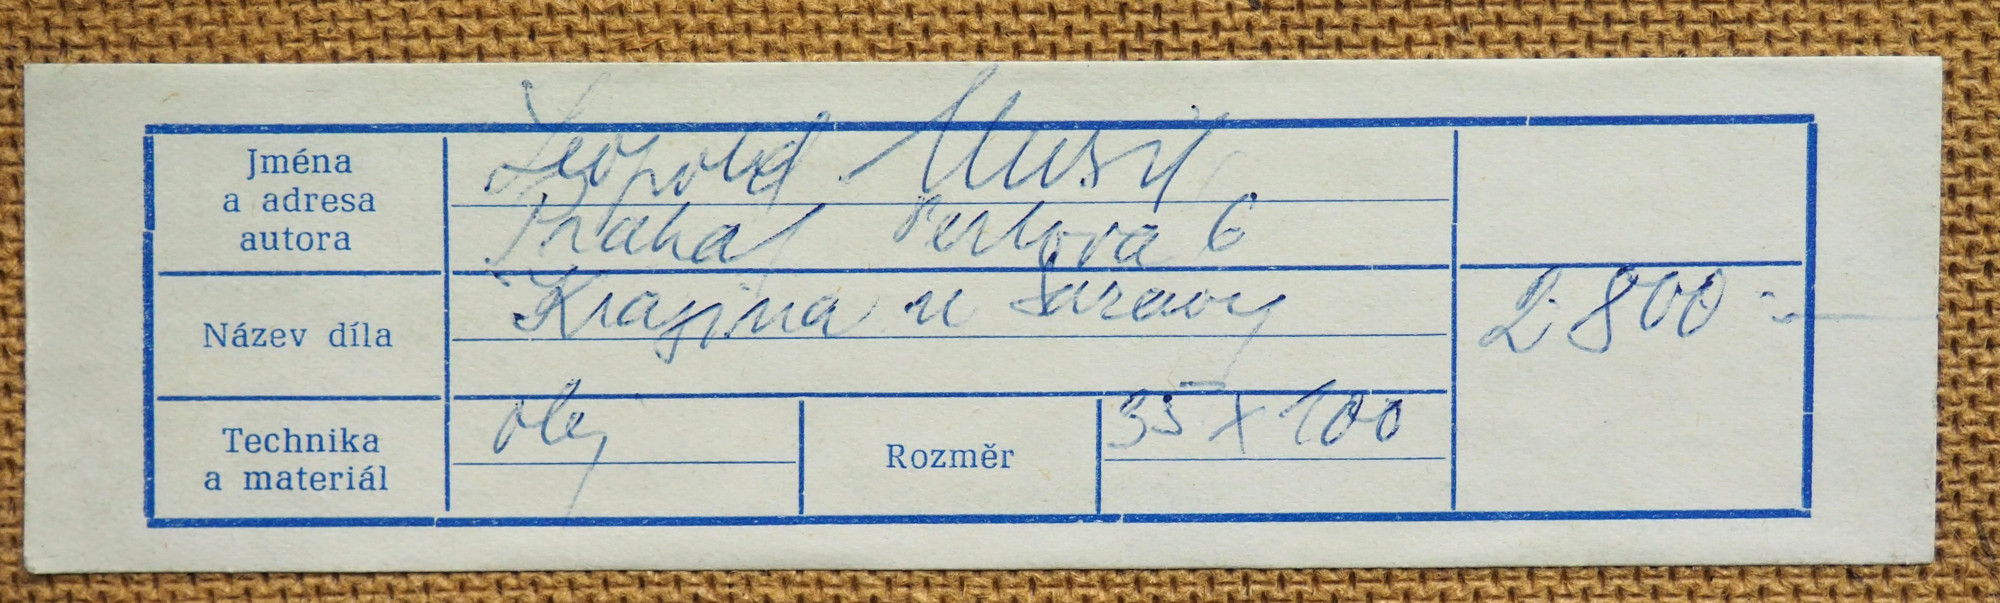 Jména
a adresa
autora
Leopold Musil
Praha 1 Perlova 6
Název díla
Krajina u Sázavy
2 800 -
Technika
a materiál
olej
Rozměr
35 x 100